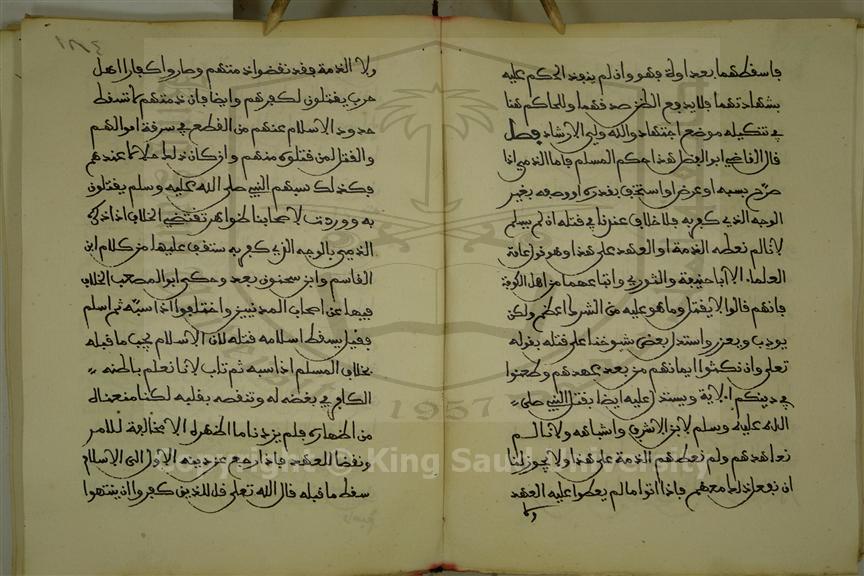 فاسقطهما بعد اولة فهو وان لم ينفذ الحكم عليه
بشهادتهما فلا يدفع الظن صدقهما وللحاكم هنا
في تنكيله موضع اجتهاد والله ولي الارشاد فصل
قال القاضي ابو الفضل هذا حكم المسلم فاما الذمي اذا
صرح بسبه او عرض او استخف بقدره او وصفه بغير
الوجه الذي كفر به فلا خلاف عندنا في قتله ان لم يسلم
لانا لم نعطه الذمة او العهد على هذا وهو قول عامة
العلماء الا ابا حنيفة والثوري واتباعهما من اهل الكوفة
فانهم قالوا لا يقتل وما هو عليه من الشرك اعظم ولكن
يودب ويعزر واستدل بعض شيوخنا على قتله بقوله
تعلى وان نكثوا ايمانهم من بعد عهدهم وطعنوا
في دينكم الاية ويستدل عليه ايضا بقتل النبي صلى
الله عليه وسلم لابن الاشرف واشباهه ولانا لم
نعاهدهم ولم نعطهم الذمة على هذا ولا يجوز لنا
ان نفعل ذلك معهم فاذا اتوا ما لم يعطوا عليه العهد
ولا
ولا الذمة فقد نقضوا ذمتهم وصاروا كفارا اهل
حرب يقتلون لكفرهم وايضا فان ذمتهم لا تسقط
حدود الاسلام عنهم من القطع في سرقة اموالهم
والقتل لمن قتلوه منهم وان كان ذلك حلالا عندهم
فكذلك سبهم النبي صلى الله عليه وسلم يقتلون
به ووردت لاصحابنا ظواهر تقتضي الخلاف اذا ذكره
الذمي بالوجه الذي كفر به ستقف عليها من كلام ابن
القاسم وابن سحنون بعد وحكى ابو المصعب الخلاف
فيها عن اصحاب المدنيين واختلفوا اذا سبه ثم اسلم
فقيل يسقط اسلامه قتله لان الاسلام يجب ما قبله
بخلاف المسلم اذا سبه ثم تاب لانا نعلم باطنه
الكافر في بغضه له وتنقصه بقلبه لكنا منعناه
من اظهاره فلم يزدنا ما اظهره الا مخالفة للامر
ونقضا للعهد فاذا رجع عن دينه الاول الى الاسلام
سقط ما قبله قال الله تعلى قل للذين كفروا ان ينتهوا
1957
Copyright © King Saud University